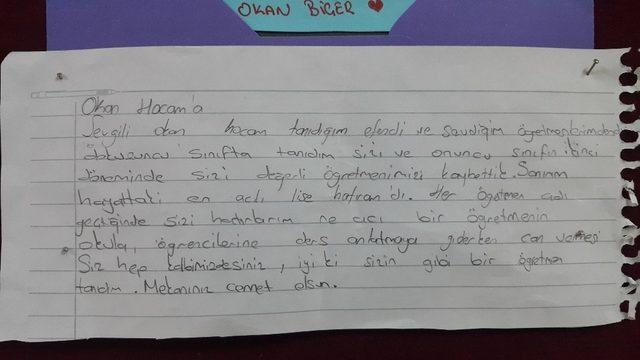 OKAN BİGER
Okan Hocam'a
Sevgili okan hocam tanıdığım efendi ve sevdiğim öğretmenlerimdendi
dokuzuncu sınıfta tanıdım sizi ve onuncu sınıfın ikinci
döneminde sizi değerli öğretmenimizi kaybettik. Sanırım
hayattaki en acı lise hatıram'dı. Her öğretmen adı
geçtiğinde sizi hatırlarım ne acı bir öğretmenin
okula, öğrencilerine ders anlatmaya giderken can vermesi
Siz hep kalbimizdesiniz, iyi ki sizin gibi bir öğretmen
tanıdım. Mekanınız cennet olsun.